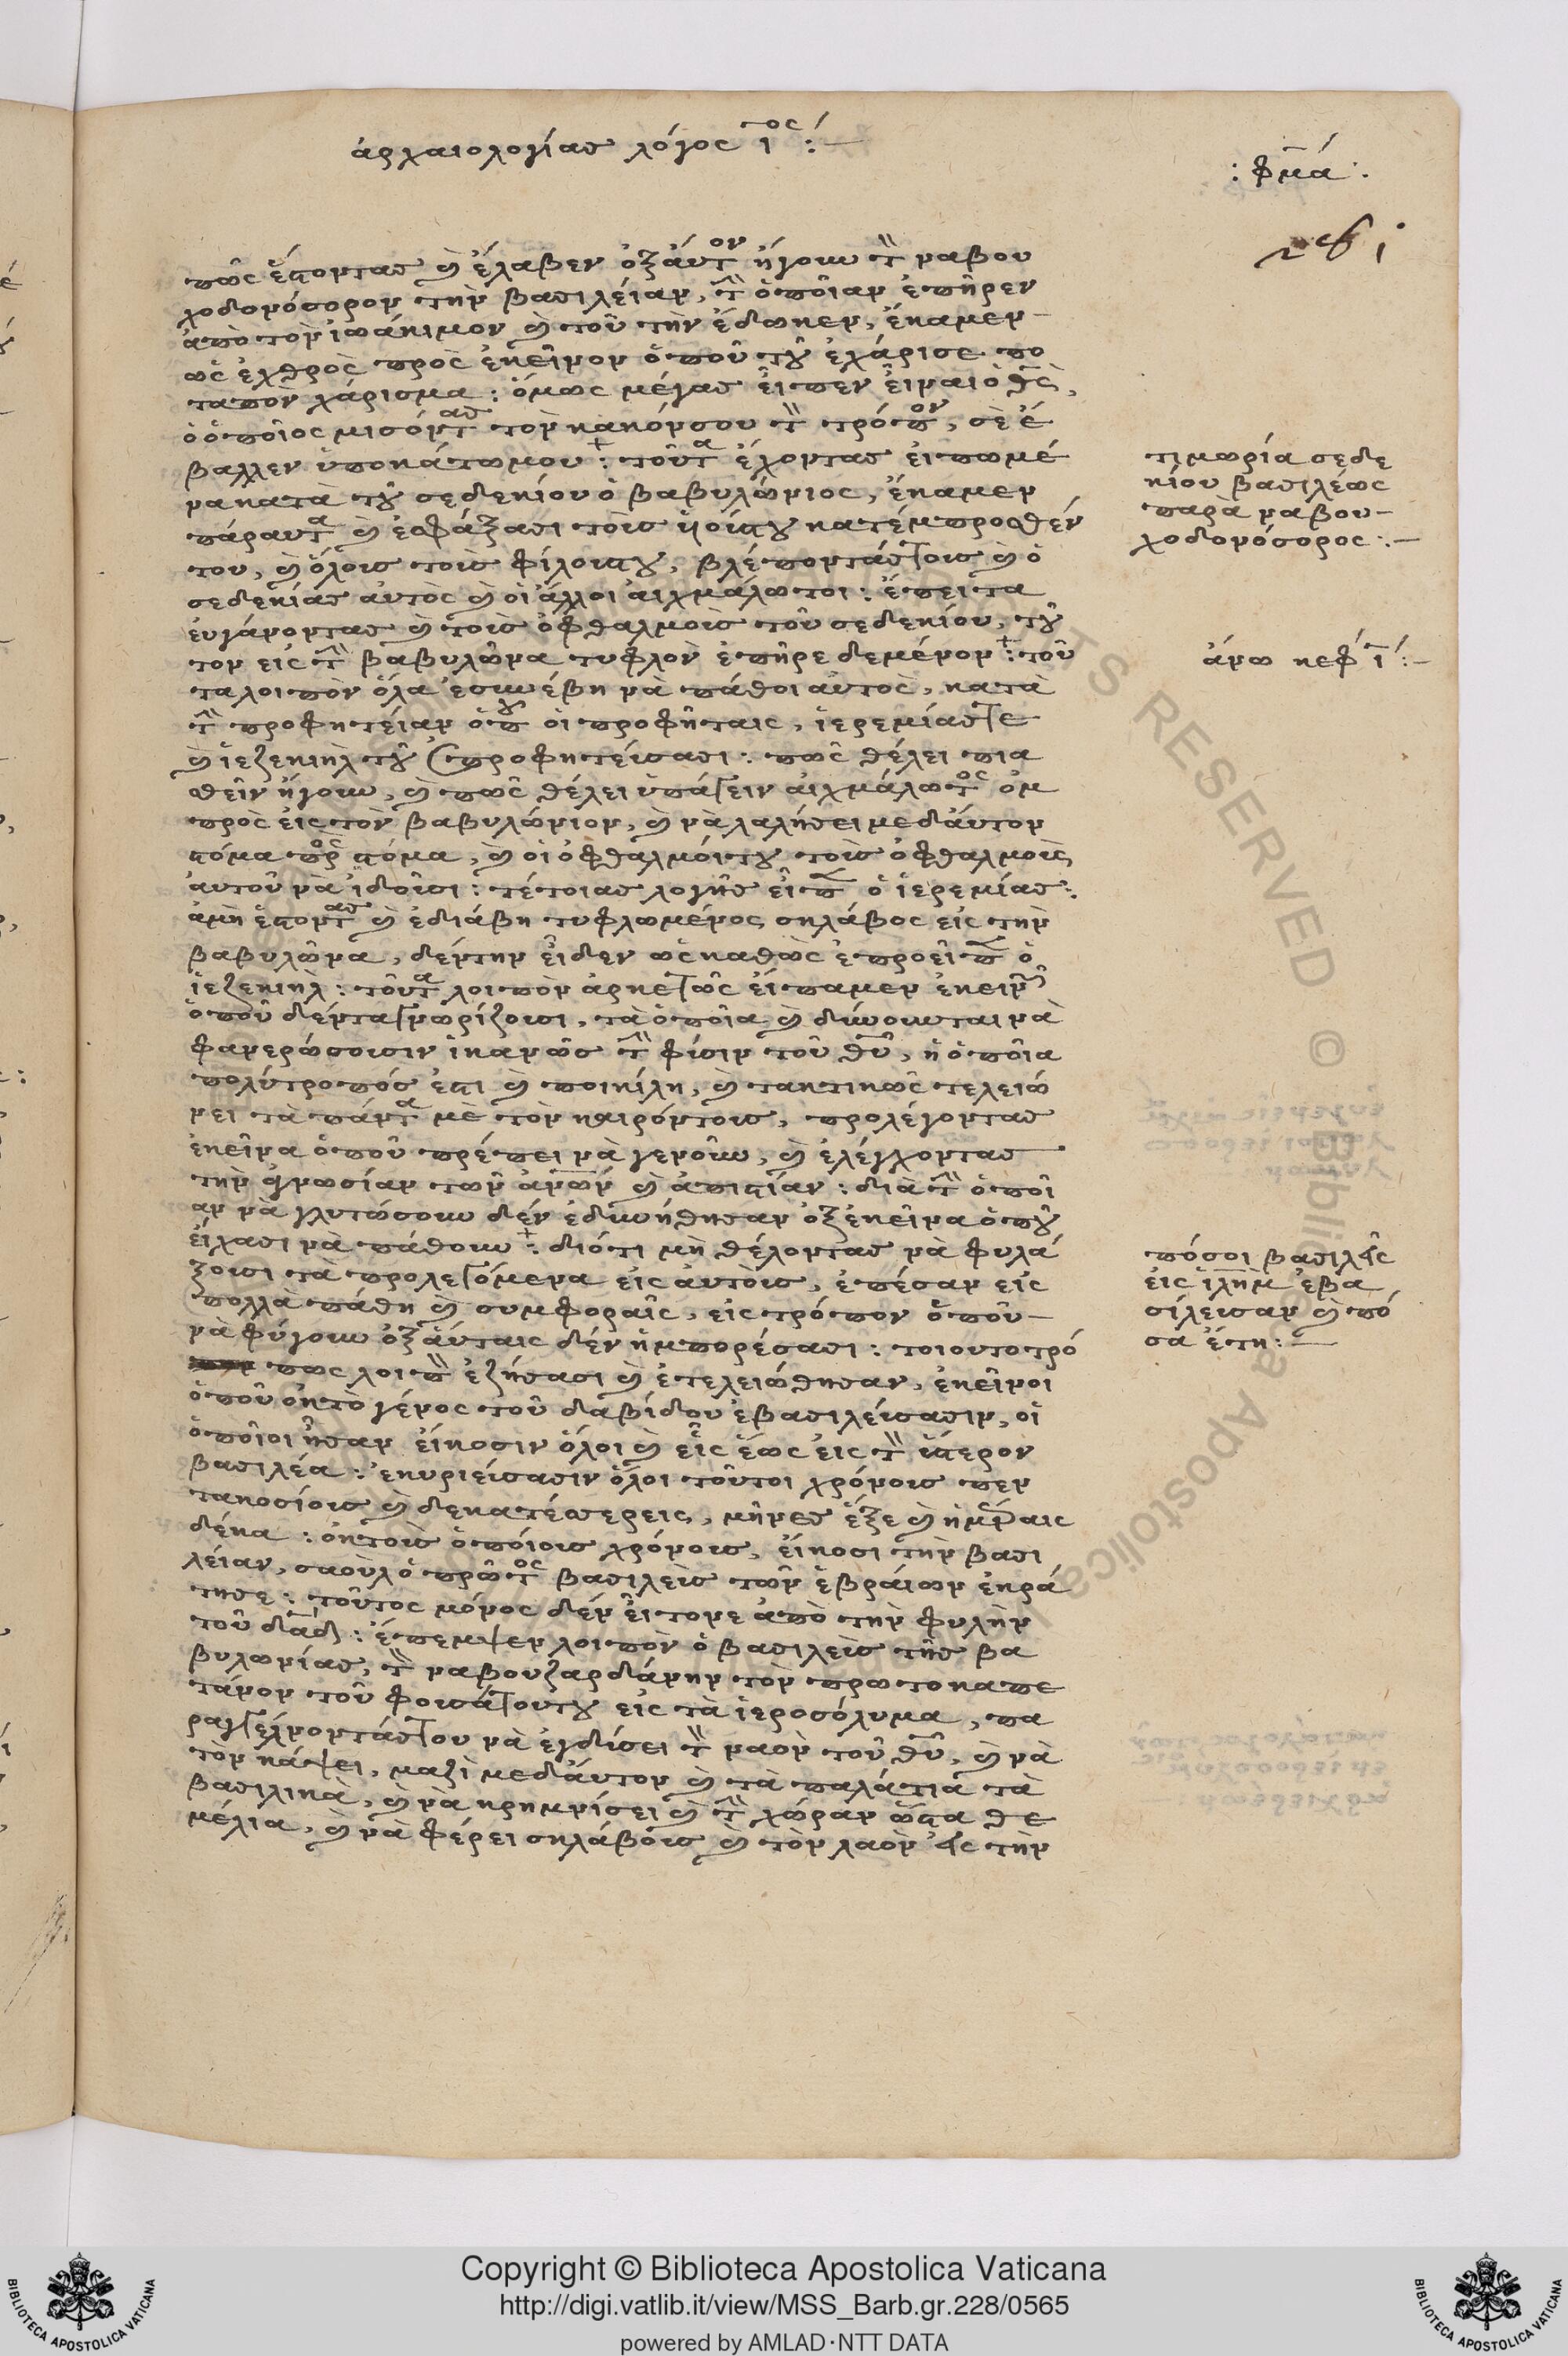 ἀρχαιολογίας λόγος ι^ος :—
: φμα :
πῶς ἔστοντας καὶ ἔλαβεν ὀξ αὐτὸν ἤγουν τὸν ναβου
χοδονόσορον τὴν βασιλείαν, τὴν ὁποῖαν ἐπῆρεν
ἀπὸ τὸν ἰωάκιμον καὶ τοῦ τὴν ἔδωκεν, ἔκαμεν
ὡς ἐχθρὸς πρὸς ἐκεῖνον ὁποῦ τοῦ ἐχάρισε πο
ταπὸν χάρισμα : ὅμως μέγας εἶπεν εἶναι ὁ θς,
ὁ ὁποῖος μισόντας τὸν κακόνσου τὸν τρόπον, σὲ ἔ
βαλλεν ὑποκάτωμου : τοῦτα ἔχοντας εἰπωμέ
νακατὰ τοῦ σεδεκίου ὁ βαβυλώνιος, ἔκαμεν
πάραυτα καὶ ἐσφάξασι τοὺς υἱούςτου κατέμπροσθέν
του, καὶ ὅλους τοὺς φίλουςτου, βλέποντάςτους καὶ ὁ
σεδεκίας αὐτὸς καὶ οἱ ἄλλοι αἰχμάλωτοι : ἔπειτα
εὐγάνοντας καὶ τοὺς ὀφθαλμοὺς τοῦ σεδεκίου, τοῦ
τον εἰς τὴν βαβυλῶνα τυφλὸν ἐπῆρε δεμένον : τοῦ
τα λοιπὸν ὅλα ἐσυνέβη νὰ πάθοι αὐτὸς, κατὰ
τὴν προφητείαν ὁποῦ οἱ προφῆταις, ἱερεμίαςτε
καὶ ἰεζεκιὴλ τοῦ ἐπροφητεύσασι : πῶς θέλει πια
θεῖν ἤγουν, καὶ πῶς θέλει ὑπάγειν αἰχμάλωτος ὀμ
πρὸς εἰς τὸν βαβυλώνιον, καὶ νὰ λαλήσει μεδαὐτον
στόμα πρὸς στόμα, καὶ οἱ ὀφθαλμοίτου τοὺς ὀφθαλμοὺς
αὐτοῦ νὰ ἰδοῦσι : τέτοιας λογῆς εἶπεν ὁ ἱερεμίας :
ἀμὴ ἔστοντας καὶ ἐδιάβη τυφλωμένος σκλάβος εἰς τὴν
βαβυλῶνα, δέντην εἶδεν ὡς καθὼς ἐπροεῖπεν ὁ
ἰεζεκιὴλ : τοῦτα λοιπὸν ἀρκετῶς εἴπαμεν ἐκείνων
ὁποῦ δέντα γνωρίζουσι, τὰ ὁποῖα καὶ δύνουνται νὰ
φανερώσουσιν ἱκανῶς τὴν φύσιν τοῦ θυ, ἡ ὁποῖα
πολύτροπός ἐστι καὶ ποικίλη, καὶ τακτικῶς τελειώ
νει τὰ πάντα μὲ τὸν καιρόντους, προλέγοντας
ἐκεῖνα ὁποῦ πρέπει νὰ γενοῦν, καὶ ἐλέγχοντας
τὴν ἀγνωσίαν τῶν ἀνῶν καὶ ἀπιστίαν : διὰ τὴν ὁποῖ
αν νὰ γλυτώσουν δὲν ἐδυνήθησαν ὀξ ἐκεῖνα ὁποῦ
εἴχασι νὰ πάθουν : διότι μὴ θέλοντας νὰ φυλά
ξουσι τὰ προλεγόμενα εἰς αὐτοὺς, ἐπέσαν εἰς
πολλὰ πάθη καὶ συμφοραῖς, εἰς τρόπον ὁποῦ
νὰ φύγουν ὀξ αὐταις δὲν ἡμπορέσασι : τοιουτοτρό
πως λοιπὸν ἐζήσασι καὶ ἐτελειώθησαν, ἐκεῖνοι
ὁποῦ ὀκ τὸ γένος τοῦ δαβίδου ἐβασιλεύσασιν, οἱ
ὁποῖοι ἦσαν εἴκοσιν ὅλοι καὶ εἷς ἕως εἰς τὸν ὕστερον
βασιλέα : ἐκυριεύσασιν ὅλοι τοῦτοι χρόνους πεν
τακοσίους καὶ δεκατέσσερεις, μῆνες ἕξε καὶ ἡμέραις
δέκα : ὀκ τοὺς ὁποίους χρόνους, εἴκοσι τὴν βασι
λείαν, σαοὺλ ὁ πρῶτος βασιλεὺς τῶν ἑβραίων ἐκρά
τησε : τοῦτος μόνος δὲν εἶτονε ἀπὸ τὴν φυλὴν
τοῦ δαδ : ἔπεμψεν λοιπὸν ὁ βασιλεὺς τῆς βα
βυλωνίας, τὸν ναβουζαρδάνην τὸν πρωτοκαπε
τάνον τοῦ φουσάτουτου εἰς τὰ ἱεροσόλυμα, πα
ραγγέλνοντάςτου νὰ ἐγδύσει τὸν ναὸν τοῦ θυ, καὶ νὰ
τὸν κάψει, μαζὶ μεδαὐτον καὶ τὰ παλάτια τὰ
βασιλικὰ, καὶ νὰ κρημνίσει καὶ τὴν χώραν ὥστα θε
μέλια, καὶ νὰ φέρει σκλάβους καὶ τὸν λαὸν εἰς τὴν
τιμωρία σεδε
κίου βασιλέως
παρὰ ναβου-
χοδονόσορος :—
ἄνω κεφ ι :—
πόσοι βασιλεῖς
εἰς ἰλημ ἐβα
σίλευσαν καὶ πό
σα ἔτη :—
Copyright © Biblioteca Apostolica Vaticana
http://digi.vatlib.it/view/MSS_Barb.gr.228/0565
powered by AMLAD·NTT DATA
BIBLIOTECA APOSTOLICA VATICANA
BIBLIOTECA APOSTOLICA VATICANA